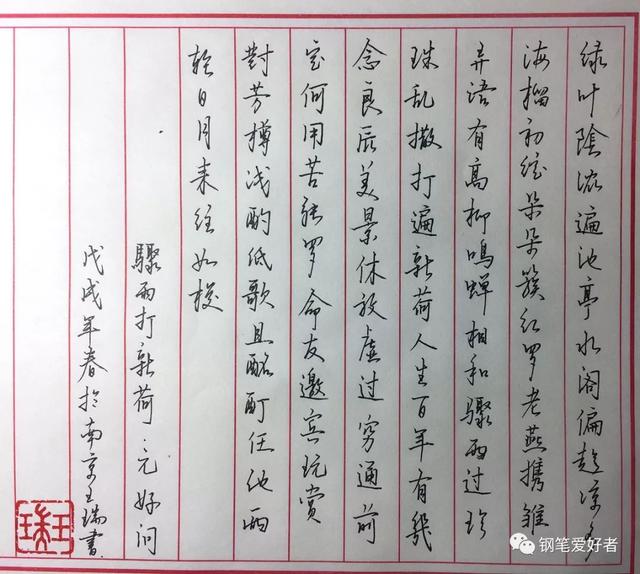 绿叶陰浓遍池亭水阁偏趁凉多
海榴初绽朵朵簇红罗老燕携雏
弄语有高柳鸣蝉相和驟雨过珍
珠乱撒打遍新荷人生百年有幾
念良辰美景休放虚过穷通前
定何用苦张罗命友邀宾玩赏
對芳樽浅酌低歌且酩酊任他两
轮日月来往如梭
驟雨打新荷:元好问
戊戌年春於南京王瑞書
钢笔爱好者